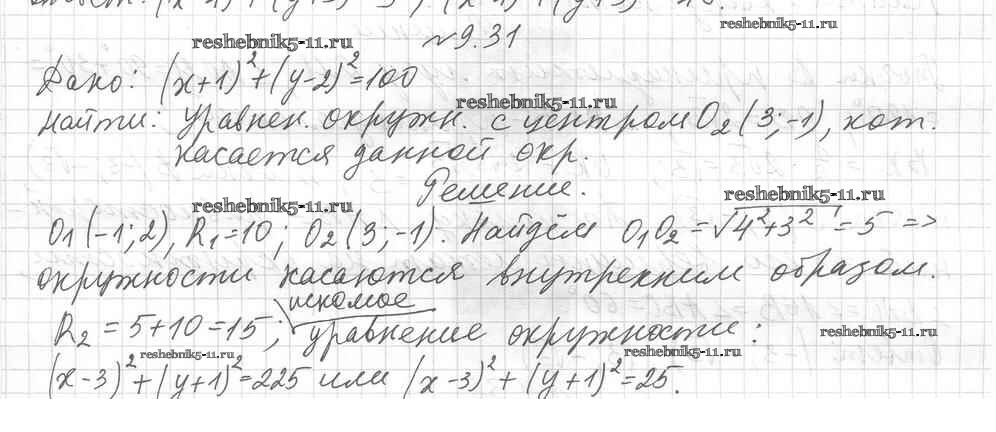 №9.31
Дано: (x+1)²+(y-2)²=100
Найти: Уравнен. окружн. с центром O₂(3;-1), кот.
касается данной окр.
Решение.
O₁(-1;2), R₁=10; O₂(3;-1). Найдём O₁O₂=√4²+3²=5 =>
окружности касаются внутренним образом.
искомое
R₂=5+10=15; уравнение окружности:
(x-3)²+(y+1)²=225 или (x-3)²+(y+1)²=25.
reshebnik5-11.ru
reshebnik5-11.ru
reshebnik5-11.ru
reshebnik5-11.ru
reshebnik5-11.ru
reshebnik5-11.ru
reshebnik5-11.ru
reshebnik5-11.ru